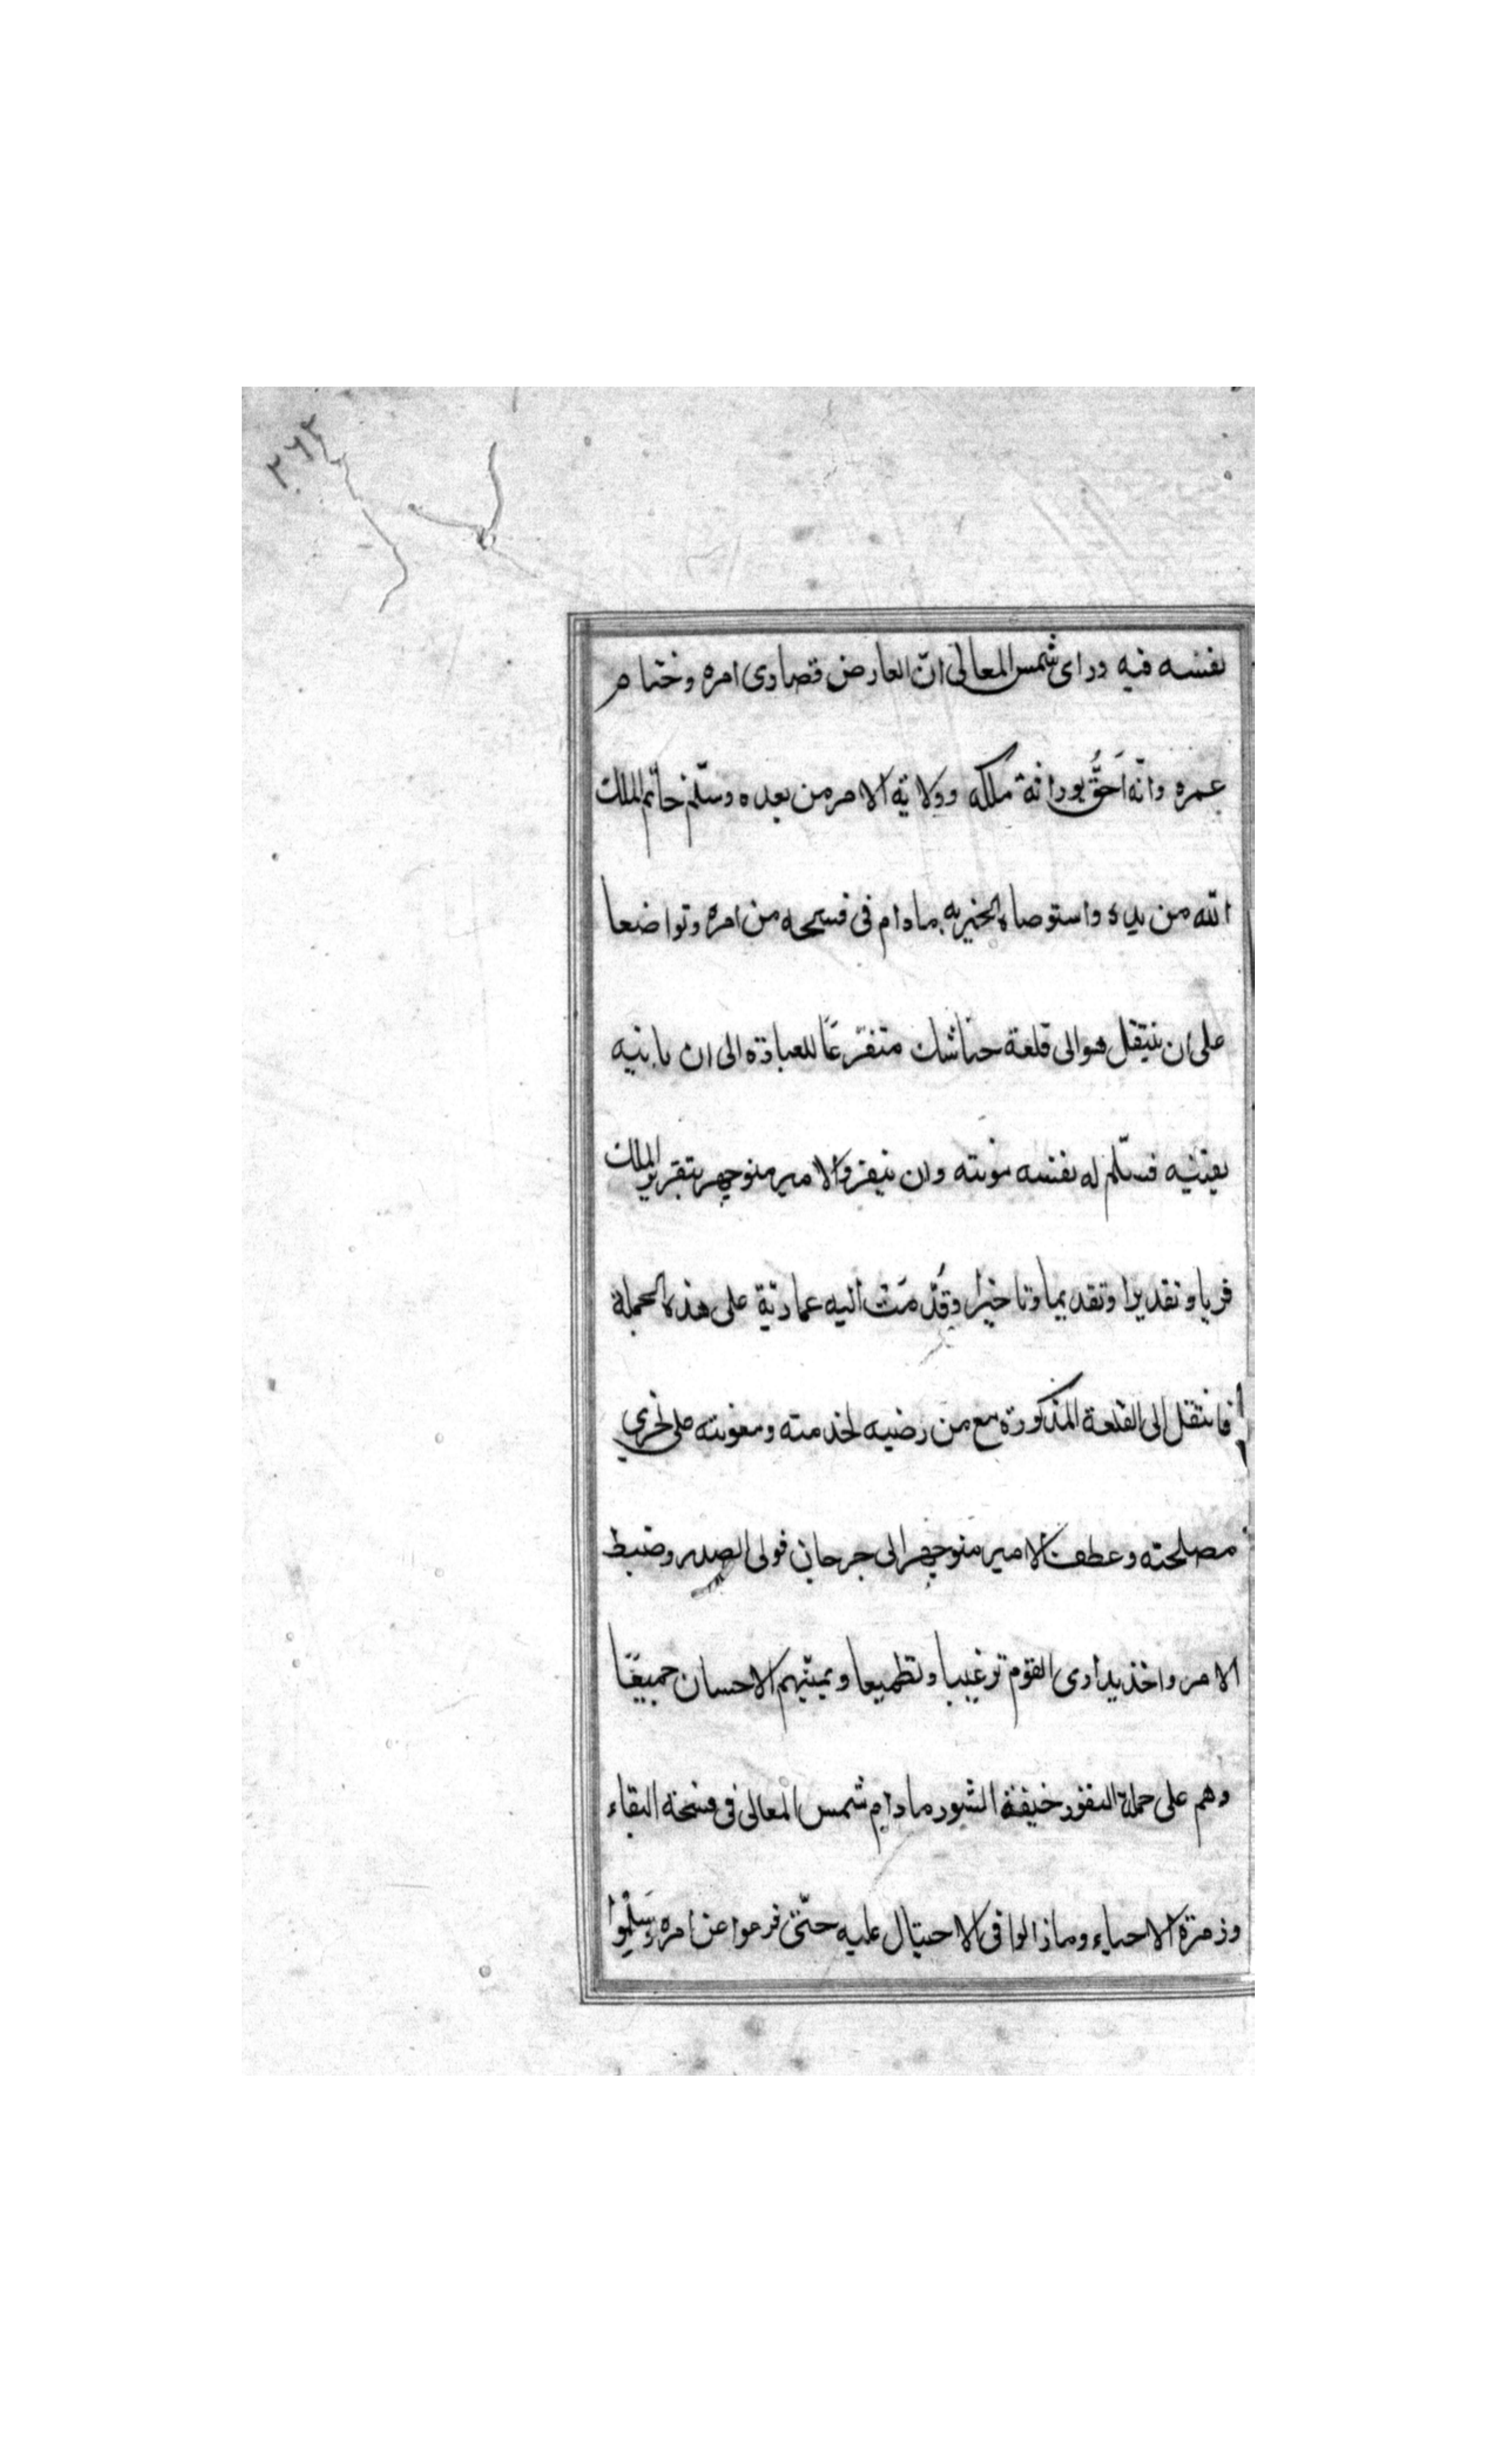 ٣٦٢
نفسه فيه وراى شمس المعالى انّ العارض قصاوى امره وختام
عمره وانّه اَحَقُّ بوراثة ملكه وولاية الامر من بعده وسلّم خاتم الملك
الله من يده واستوصاه الخير به مادام فى فسحه من امره وتواضعا
على ان ينتقل هو الى قلعة جناشك متفرّغًا للعبادة الى ان ياتيه
يقينه فسلّم له نفسه نوبته وان ينفرد الامير منوچهر بتقرير الملك
فريا وتقديرا وتقديما وتاخيرا وقُدّمَت اليه عمارية على هذه الجملة
فانتقل الى القلعة المذكورة مع من رضيه لخدمته ومعونته على تحرى
مصلحته وعطف الامير منوچهر الى جرجان فولى الصدر وضبط
الامر واخذ يدارى القوم ترغيبا وتطميعا ويمنيهم الاحسان جميعًا
وهم على جملة النفور خيفة الشور مادام شمس المعالى فى فسحة البقاء
وزمرة الاحياء ومازالوا فى الاحتيال عليه حتّى فرعوا عن امره وسَلِمُوا